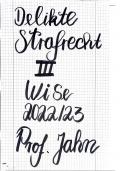 Delikte
Strafrecht
III
WiSe
2022/23
Prof. Jahn